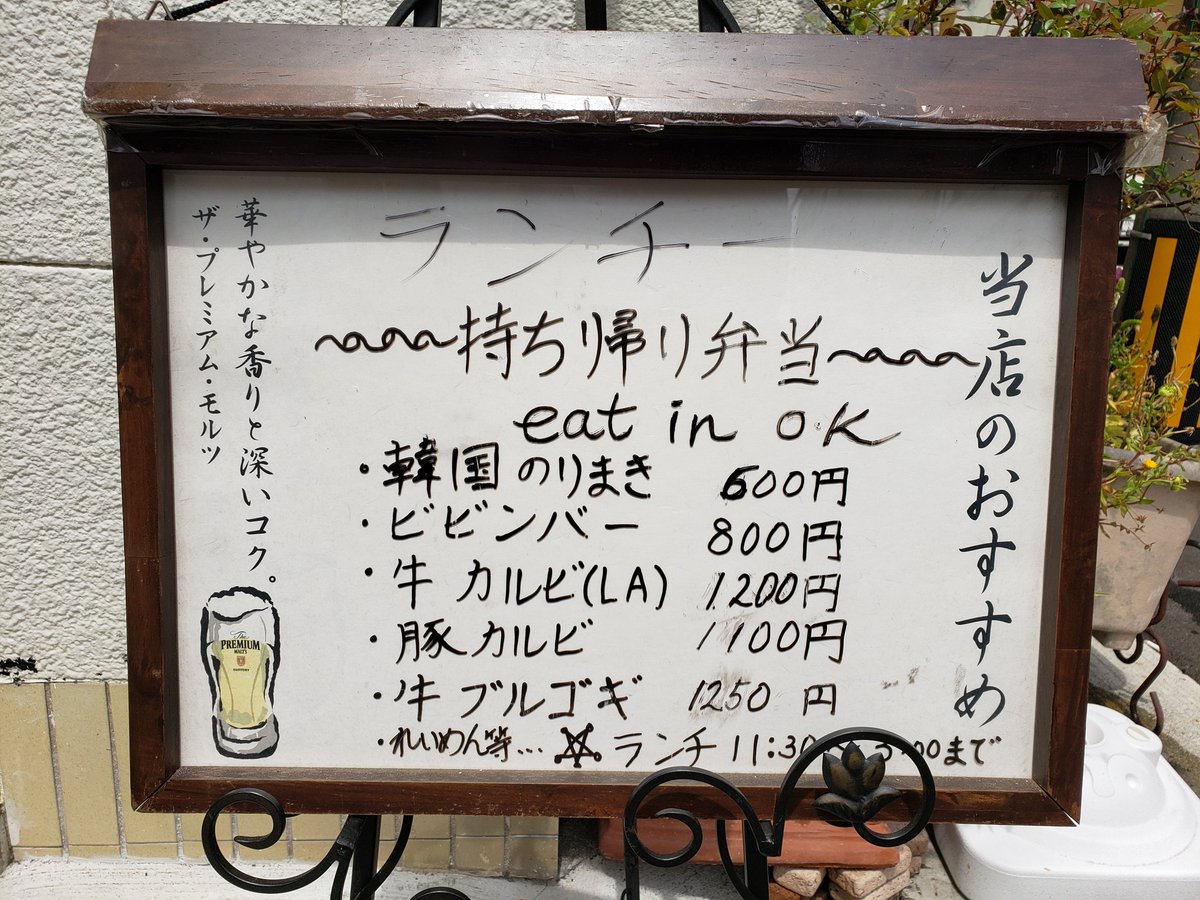 当店のおすすめ
ランチー
持ち帰り弁当
eat in OK
・韓国のりまき 600円
・ビビンバー 800円
・牛カルビ(LA) 1200円
・豚カルビ 1100円
・牛ブルゴギ 1250円
・れいめん等... ☆ランチ 11:30 :00まで
華やかな香りと深いコク。
ザ・プレミアム・モルツ
The
PREMIUM
MALT'S
SUNTORY